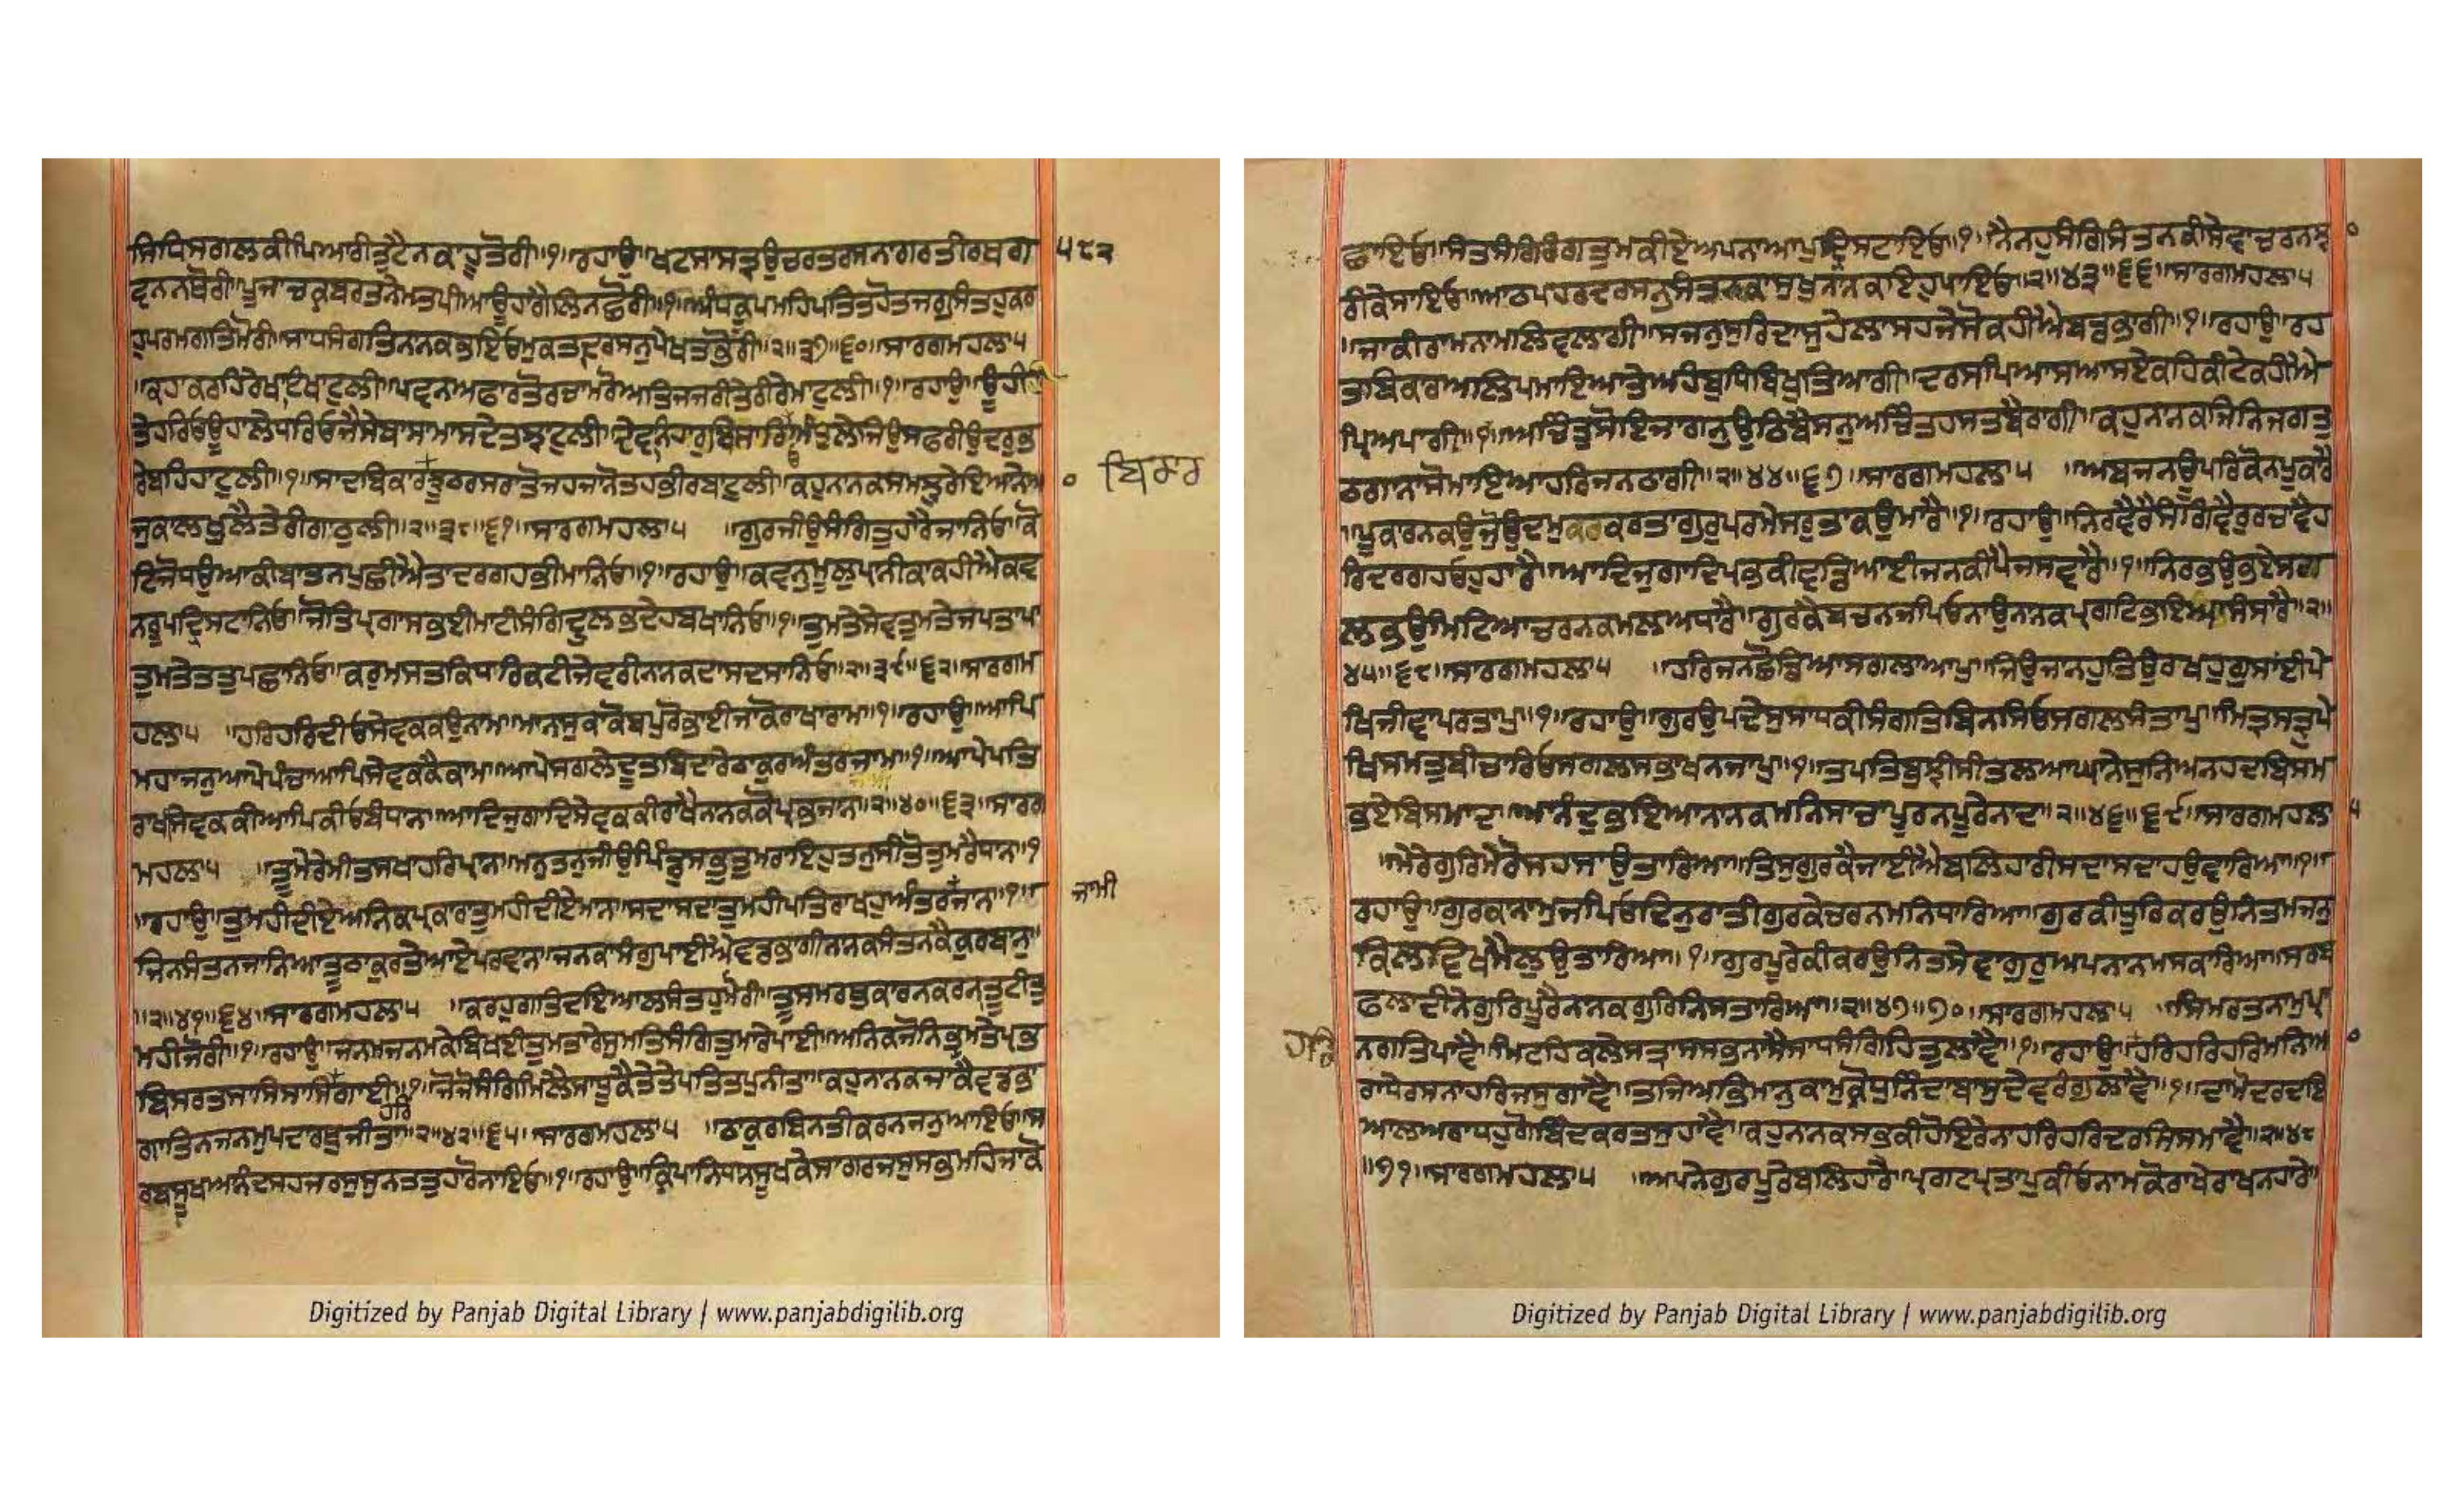 ਸਿਧਿਸਗਲਕੀਪਿਆਰੀਤੁਟੈਨਕਾਹੂਤੋਰੀ॥੧॥ਰਹਾਉ॥ਖਟਸਾਸਤ੍ਰਉਚਰਤਰਸਨਾਗਰਤੀਰਥਗ ੫੮੨
ਵਨਨਥੋਰੀ॥ਪੂਜਾਚਕ੍ਰਬਰਤਨੇਮਤਪੀਆਊਹਾਗੈਲਿਨਛੋਰੀ॥੧॥ਅੰਧਕੂਪਮਹਿਪਤਿਤਹੋਤਜਗੁਸੰਤਹੁਕਰ
ਹੁਪਰਮਗਤਿਮੋਰੀ॥ਸਾਧਸੰਗਤਿਨਨਕਭਇਓਮੁਕਤਾਦਰਸਨੁਪੇਖਤਭੋਰੀ॥੨॥੩੭॥੬੦॥ਸਾਰਗਮਹਲਾ੫
॥ਕਹਾਕਰਹਿਰੇਖਾਇਖਾਟੁਲੀ॥ਪਵਨਅਫਾਰਤੋਰਚਾਮਰੋਅਤਿਜਜਰੀਤੇਰੀਰੇਮਾਟੁਲੀ॥੧॥ਰਹਾਉ॥ਊਹੀ
ਤੇਹਰਿਓਊਹਾਲੇਧਰਿਓਜੈਸੇਬਾਸਾਮਾਸਦੇਤਝਾਟੁਲੀ॥ਦੇਵਨਹਾਰੁਬਿਸਾਰਿਓਅੰਧੁਲੇਜਿਉਸਫਰੀਉਦਰੁਭ
ਰੇਬਹਿਹਾਟੁਲੀ॥੧॥ਸਾਦਬਿਕਾਰਝੂਠਰਸਰਾਤੋਜਹਜਾਨੋਤਹਭੀਰਬਾਟੁਲੀ॥ਕਹੁਨਨਕਸਮਝੁਰੇਇਆਨੇਆ ੦ ਬਿਕਾਰ
ਜੁਕਾਲਖੁਲੈਤੇਰੀਗਾਠੁਲੀ॥੨॥੩੮॥੬੧॥ਸਾਰਗਮਹਲਾ੫ ॥ਗੁਰਜੀਉਸੰਗਿਤੁਹਾਰੈਜਾਨਿਓ॥ਕੋ
ਟਿਜੋਧਉਆਕੀਬਾਤਨਪੁਛੀਐਤਾਦਰਗਹਭੀਮਾਨਿਓ॥੧॥ਰਹਾਉ॥ਕਵਨੁਮੂਲੁਪ੍ਰਾਨੀਕਾਕਹੀਐਕਵ
ਨਰੂਪਦ੍ਰਿਸਟਾਨਿਓ॥ਜੋਤਿਪ੍ਰਗਾਸਭਈਮਾਟੀਸੰਗਿਦੁਲਭਦੇਹਬਖਾਨਿਓ॥੧॥ਤੁਮਤੇਸੇਵਤੁਮਤੇਜਪਤਾਪ
ਤੁਮਤੇਤਤੁਪਛਾਨਿਓ॥ਕਰੁਮਸਤਕਿਧਰਿਕਟੀਜੇਵਰੀਨਨਕਦਾਸਦਸਾਨਿਓ॥੨॥੩੯॥੬੨॥ਸਾਰਗਮ
ਹਲਾ੫ ॥ਹਰਿਹਰਿਦੀਓਸੇਵਕਕਉਨਾਮ॥ਮਾਨਸੁਕਾਕੋਬਪੁਰੋਭਾਈਜਾਕੋਰਾਖਾਰਾਮ॥੧॥ਰਹਾਉ॥ਆਪਿ
ਮਹਾਜਨੁਆਪੇਪੰਚਾਆਪਿਸੇਵਕਕੈਕਾਮ॥ਆਪੇਸਗਲੇਦੂਤਬਿਦਾਰੇਠਾਕੁਰਅੰਤਰਜਾਮ॥੧॥ਆਪੇਪਤਿ
ਰਾਖੀਸੇਵਕਕੀਆਪਿਕੀਓਬੰਧਾਨ॥ਆਦਿਜੁਗਾਦਿਸੇਵਕਕੀਰਾਖੈਨਨਕਕੋਪ੍ਰਭਜਾਨ॥੨॥੪੦॥੬੩॥ਸਾਰਗ
ਮਹਲਾ੫ ॥ਤੂਮੇਰੇਮੀਤਸਖਾਹਰਿਪ੍ਰਾਨ॥ਮਨੁਤਨੁਜੀਉਪਿੰਡੁਸਭੁਤੁਮਰਾਇਹੁਤਨੁਸੀਤੋਤੁਮਰੈਧਾਨ॥੧
॥ਰਹਾਉ॥ਤੁਮਹੀਦੀਏਅਨਿਕਪ੍ਰਕਾਰਾਤੁਮਹੀਦੀਏਮਾਨ॥ਸਦਾਸਦਾਤੁਮਹੀਪਤਿਰਾਖਹੁਅੰਤਰਜਾਨ॥੧॥ ਜਾਮੀ
ਜਿਨਸੰਤਨਜਾਨਿਆਤੂਠਾਕੁਰਤੇਆਏਪਰਵਾਨ॥ਜਨਕਾਸੰਗੁਪਾਈਐਵਡਭਾਗੀਨਨਕਸੰਤਨਕੈਕੁਰਬਾਨੁ॥
॥੨॥੪੧॥੬੪॥ਸਾਰਗਮਹਲਾ੫ ॥ਕਰਹੁਗਤਿਦਇਆਲਸੰਤਹੁਮੋਰੀ॥ਤੂਸਮਰਥਕਾਰਨਕਰਨਤੂਟੀਤੁ
ਮਹੀਜੋਰੀ॥੧॥ਰਹਾਉ॥ਜਨਮਜਨਮਕੇਬਿਖਈਤੁਮਤਾਰੇਸੁਮਤਿਸੰਗਿਤੁਮਾਰੈਪਾਈ॥ਅਨਿਕਜੋਨਿਭ੍ਰਮਤੇਪ੍ਰਭ
ਬਿਸਰਤਸਾਸਿਸਾਸਿਗਾਈ॥੧॥ਜੋਜੋਸੰਗਿਮਿਲੈਸਾਧੂਕੈਤੇਤੇਪਤਿਤਪੁਨੀਤਾ॥ਕਹੁਨਾਨਕਜਾਕੈਵਡਭ ਹਰਿ
ਗਾਤਿਨਜਨਮੁਪਦਾਰਥੁਜੀਤਾ॥੨॥੪੨॥੬੫॥ਸਾਰਗਮਹਲਾ੫ ॥ਠਾਕੁਰਬਿਨਤੀਕਰਨਜਨੁਆਇਓ॥ਸ
ਰਬਸੂਖਅਨੰਦਸਹਜਰਸਸੁਨਤਤੁਹਾਰੋਨਾਇਓ॥੧॥ਰਹਾਉ॥ਕ੍ਰਿਪਾਨਿਧਾਨਸੂਖਕੇਸਾਗਰਜਸੁਸਭਮਹਿਜਾਕੋ
Digitized by Panjab Digital Library | www.panjabdigilib.org
ਛਾਇਓ॥ਸੰਤਸੰਗਿਰੰਗਤੁਮਕੀਏਅਪਨਾਆਪੁਦ੍ਰਿਸਟਾਇਓ॥੧॥ਨੈਨਹੁਸੰਗਿਸੰਤਨਕੀਸੇਵਾਚਰਨਝ ੦
ਰੀਕੇਸਾਇਓ॥ਆਠਪਹਰਦਰਸਨੁਸੰਤਨਕਾਸੁਖੁਨਨਕਇਹੁਪਾਇਓ॥੨॥੪੩॥੬੬॥ਸਾਰਗਮਹਲਾ੫
॥ਜਾਕੀਰਾਮਨਾਮਲਿਵਲਾਗੀ॥ਸਜਨੁਸੁਰਿਦਾਸੁਹੇਲਾਸਹਜੇਸੋਕਹੀਐਬਡਭਾਗੀ॥੧॥ਰਹਾਉ॥ਰਹ
ਤਬਿਕਰਅਲਿਪਮਾਇਆਤੇਅਹੰਬੁਧਿਬਿਖੁਤਿਆਗੀ॥ਦਰਸਪਿਆਸਆਸਏਕਹਿਕੀਟੇਕਹੀਐ
ਪ੍ਰਿਅਪਾਗੀ॥੧॥ਅਚਿੰਤੁਸੋਇਜਾਗਨੁਉਠਿਬੈਸਨੁਅਚਿੰਤਹਸਤਬੈਰਾਗੀ॥ਕਹੁਨਨਕਜਿਨਿਜਗਤੁ
ਠਗਾਨਾਸੋਮਾਇਆਹਰਿਜਨਠਾਗੀ॥੨॥੪੪॥੬੭॥ਸਾਰਗਮਹਲਾ੫ ॥ਅਬਜਨਊਪਰਿਕੋਨਪੁਕਾਰੈ
॥ਪੂਕਾਰਨਕਉਜੋਉਦਮੁਕਰਤਾਗੁਰੁਪਰਮੇਸਰੁਤਾਕਉਮਾਰੈ॥੧॥ਰਹਾਉ॥ਨਿਰਵੈਰੈਸੰਗਿਵੈਰੁਰਚਾਵੈਹ
ਰਿਦਰਗਹਓਹੁਹਾਰੈ॥ਆਦਿਜੁਗਾਦਿਪ੍ਰਭਕੀਵਡਿਆਈਜਨਕੀਪੈਜਸਵਾਰੈ॥੧॥ਨਿਰਭਉਭਏਸਗ
ਲਭਉਮਿਟਿਆਚਰਨਕਮਲਆਧਾਰੈ॥ਗੁਰਕੈਬਚਨਜਪਿਓਨਾਉਨਨਕਪ੍ਰਗਟਿਭਇਆਸੰਸਾਰੈ॥੨॥
੪੫॥੬੮॥ਸਾਰਗਮਹਲਾ੫ ॥ਹਰਿਜਨਛੋਡਿਆਸਗਲਾਆਪੁ॥ਜਿਉਜਾਨਹੁਤਿਉਰਖਹੁਗੁਸਾਈਪੇ
ਖਿਜੀਵਾਪਰਤਾਪੁ॥੧॥ਰਹਾਉ॥ਗੁਰਉਪਦੇਸੁਸਾਧਕੀਸੰਗਤਿਬਿਨਾਸਿਓਸਗਲਸੰਤਾਪੁ॥ਮਿਤ੍ਰਸਤ੍ਰਪੇ
ਖਿਸਮਤੁਬੀਚਾਰਿਓਸਗਲਸਭਾਖਨਜਾਪੁ॥੧॥ਤਪਤਿਬੁਝੀਸੀਤਲਆਘਾਨੇਸੁਨਿਅਨਹਦਬਿਸਮ
ਭਏਬਿਸਮਾਦਾ॥ਆਨੰਦੁਭਇਆਨਾਨਕਮਨਿਸਾਚਾਪੂਰਨਪੂਰੇਨਾਦਾ॥੨॥੪੬॥੬੯॥ਸਾਰਗਮਹਲਾ ੫
॥ਮੇਰੈਗੁਰਿਮੋਰੋਸਹਸਾਉਤਾਰਿਆ॥ਤਿਸੁਗੁਰਕੈਜਾਈਐਬਲਿਹਾਰੀਸਦਾਸਦਾਹਉਵਾਰਿਆ॥੧॥
ਰਹਾਉ॥ਗੁਰਕਾਨਾਮੁਜਪਿਓਦਿਨੁਰਾਤੀਗੁਰਕੇਚਰਨਮਨਿਧਾਰਿਆ॥ਗੁਰਕੀਧੂਰਿਕਰਉਨਿਤਮਜਨੁ
ਕਿਲਵਿਖਮੈਲੁਉਤਾਰਿਆ॥੧॥ਗੁਰਪੂਰੇਕੀਕਰਉਨਿਤਸੇਵਾਗੁਰੁਅਪਨਾਨਮਸਕਾਰਿਆ॥ਸਰਬ
ਫਲਾਦੀਨੇਗੁਰਿਪੂਰੈਨਨਕਗੁਰਿਨਿਸਤਾਰਿਆ॥੨॥੪੭॥੭੦॥ਸਾਰਗਮਹਲਾ੫ ॥ਸਿਮਰਤਨਾਮੁਪ੍ਰ
ਨਗਤਿਪਾਵੈ॥ਮਿਟਹਿਕਲੇਸਤ੍ਰਾਸਸਭਨਾਸੈਸਾਧਸੰਗਿਹਿਤੁਲਾਵੈ॥੧॥ਰਹਾਉ॥ਹਰਿਹਰਿਹਰਿਮਨਿਆ ੦
ਰਾਧੇਰਸਨਾਹਰਿਜਸੁਗਾਵੈ॥ਤਜਿਅਭਿਮਾਨੁਕਾਮੁਕ੍ਰੋਧੁਨਿੰਦਾਬਾਸੁਦੇਵਰੰਗੁਲਾਵੈ॥੧॥ਦਾਮੋਦਰਦਇ
ਆਲਅਰਾਧਹੁਗੋਬਿੰਦਕਰਤਸੁਹਾਵੈ॥ਕਹੁਨਨਕਸਭਕੀਹੋਇਰੇਨਾਹਰਿਹਰਿਦਰਸਿਸਮਾਵੈ॥੨॥੪੮
॥੭੧॥ਸਾਰਗਮਹਲਾ੫ ॥ਅਪਨੇਗੁਰਪੂਰੇਬਲਿਹਾਰੈ॥ਪ੍ਰਗਟਪ੍ਰਤਾਪੁਕੀਓਨਾਮਕੋਰਾਖੇਰਾਖਨਹਾਰੈ
Digitized by Panjab Digital Library | www.panjabdigilib.org